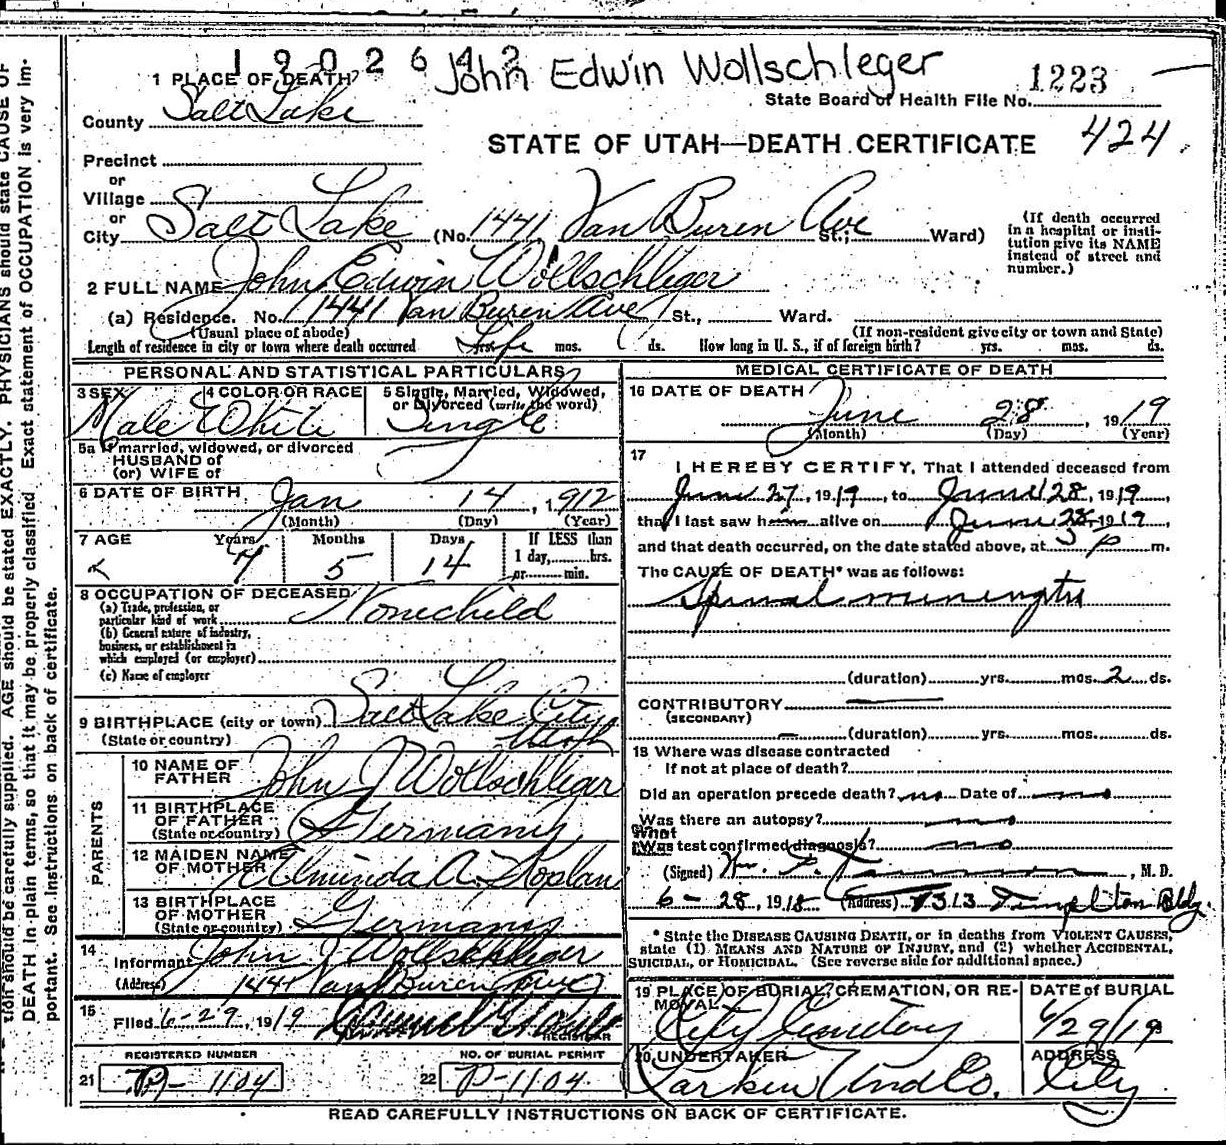 1902642
John Edwin Wollschleger
1223
State Board of Health File No.
424
STATE OF UTAH—DEATH CERTIFICATE
1 PLACE OF DEATH
County Salt Lake
Precinct
or
Village
or
City Salt Lake (No. 1441 Van Buren Ave St.; Ward)
(If death occurred in a hospital or insti-
tution give its NAME
instead of street and
number.)
2 FULL NAME John Edwin Wollschleger
(a) Residence. No. 1441 Van Buren Ave St., Ward.
(Usual place of abode) (If non-resident give city or town and State)
Length of residence in city or town where death occurred Life mos. ds. How long in U. S., if of foreign birth? yrs. mos. ds.
PERSONAL AND STATISTICAL PARTICULARS
3 SEX Male
4 COLOR OR RACE White
5 Single, Married, Widowed,
or Divorced (write the word) Single
5a If married, widowed, or divorced
HUSBAND of
(or) WIFE of
6 DATE OF BIRTH Jan 14, 1912
(Month) (Day) (Year)
7 AGE Years 7 Months 5 Days 14
If LESS than
1 day, hrs.
or min.
8 OCCUPATION OF DECEASED None child
(a) Trade, profession, or
particular kind of work
(b) General nature of industry,
business, or establishment in
which employed (or employer)
(c) Name of employer
9 BIRTHPLACE (city or town) Salt Lake City
(State or country) Utah
PARENTS
10 NAME OF
FATHER John J Wollschleger
11 BIRTHPLACE
OF FATHER
(State or country) Germany
12 MAIDEN NAME
OF MOTHER A.
13 BIRTHPLACE
OF MOTHER
(State or country) Germany
14
Informant John J Wollschleger
(Address) 1441 Van Buren Ave
15
Filed 6-29, 1919
REGISTRAR
REGISTERED NUMBER
21 1104
NO. OF BURIAL PERMIT
22 P-1104
MEDICAL CERTIFICATE OF DEATH
16 DATE OF DEATH June 28, 1919
(Month) (Day) (Year)
17
I HEREBY CERTIFY, That I attended deceased from
June 27, 1919, to June 28, 1919,
that I last saw him alive on June 28, 1919,
and that death occurred, on the date stated above, at 5 p m.
The CAUSE OF DEATH* was as follows:
Spinal miningitis
(duration) yrs. mos. 2 ds.
CONTRIBUTORY
(SECONDARY)
(duration) yrs. mos. ds.
18 Where was disease contracted
If not at place of death?
Did an operation precede death? no Date of
Was there an autopsy? no
What
Was test confirmed diagnosis? no
(Signed) Wm. , M. D.
6-28, 1918 (Address) 313 Templeton Bldg.
* State the DISEASE CAUSING DEATH, or in deaths from VIOLENT CAUSES,
state (1) MEANS AND NATURE OF INJURY, and (2) whether ACCIDENTAL,
SUICIDAL, or HOMICIDAL. (See reverse side for additional space.)
19 PLACE OF BURIAL, CREMATION, OR RE-
MOVAL City Cemetery
DATE of BURIAL
6/29/19
20 UNDERTAKER
Larkin Und Co.
ADDRESS
City
READ CAREFULLY INSTRUCTIONS ON BACK OF CERTIFICATE.
tion should be carefully supplied. AGE should be stated EXACTLY. PHYSICIANS should state CAUSE OF
DEATH in plain terms, so that it may be properly classified. Exact statement of OCCUPATION is very im-
portant. See instructions on back of certificate.